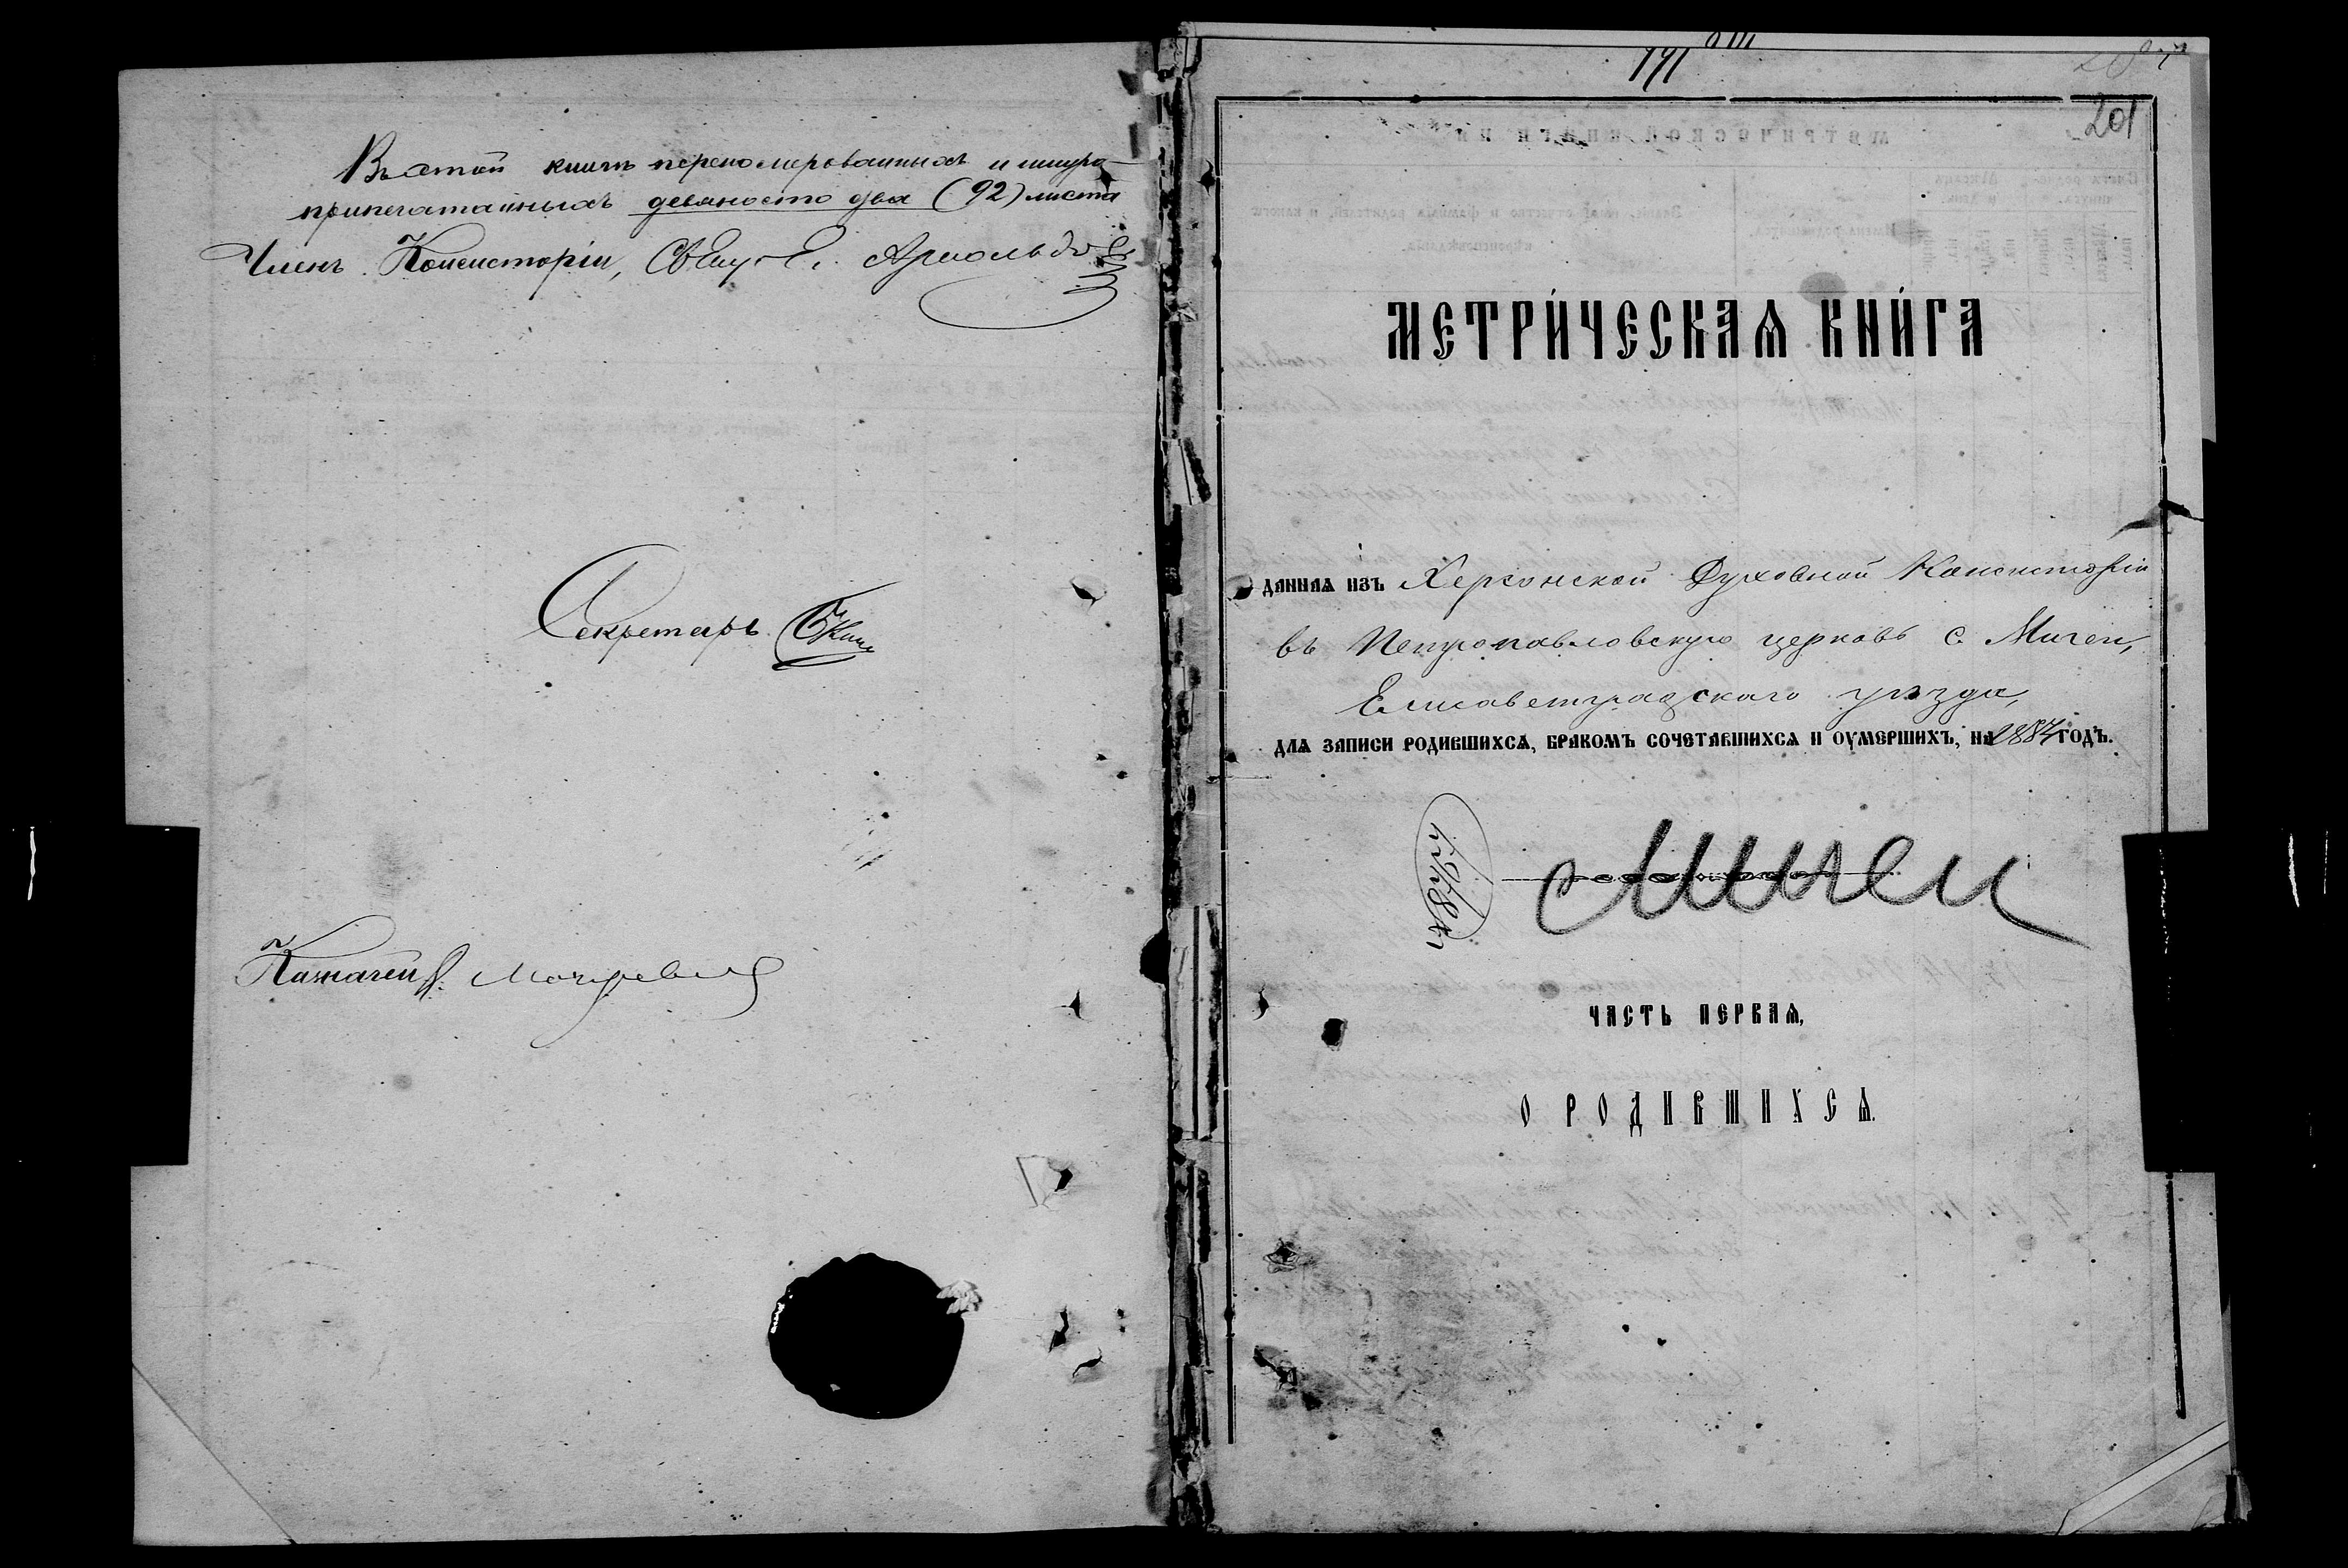 Въ этой книгѣ перенομерованныхъ и шнуро-
припечатанныхъ девяносто два (92) листа
Членъ Консисторіи, Свящ. Е. Арнольдовъ
Секретарь
Казначей
191
201
МЕТРИ́ЧЕСКАѦ КНИ́ГА
даннаѧ изъ Херсонской Духовной Консисторіи
въ Петропавловскую церковь с. Мигеи,
Елисаветградскаго уѣзда,
длѧ записи родившихсѧ, бракомъ сочетавшихсѧ и оумершихъ, на 1884 годъ.
Мигеи
ЧАСТЬ ПЕРВАѦ,
О РОДИВШИХСѦ.